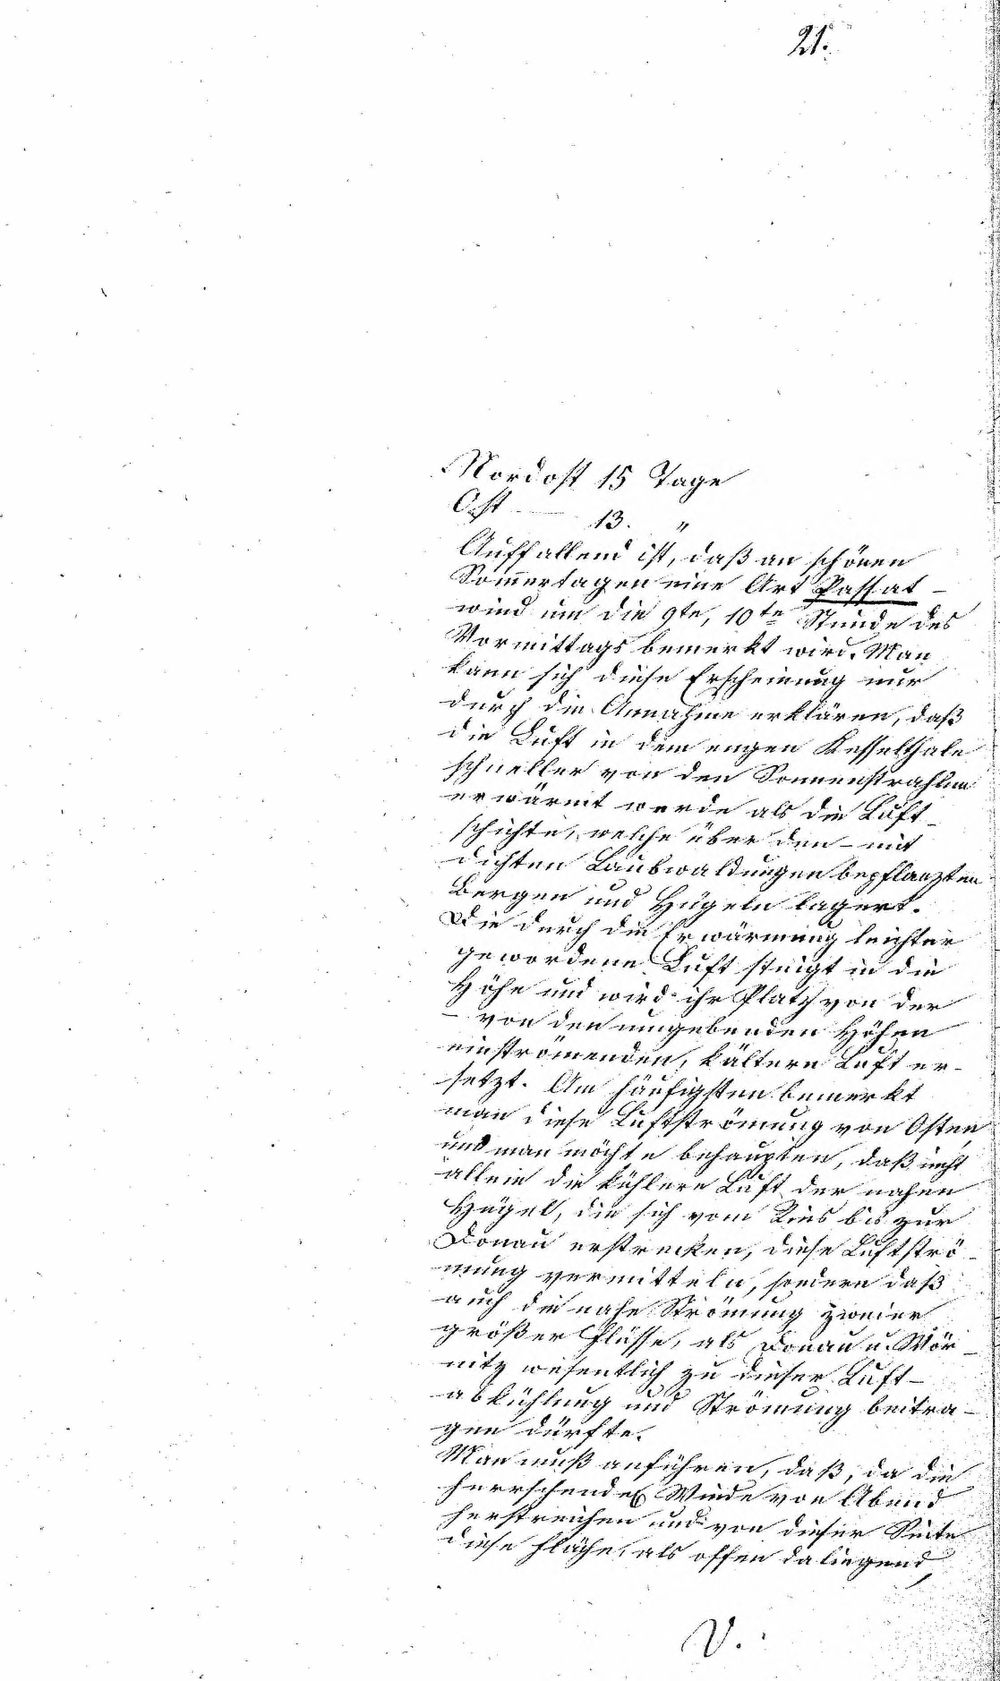 21.
Nordost 15 Tage
Ost — 13. "
Auffallend ist, daß an schönen
Sommertagen eine Art Passat-
wind um die 9te, 10te Stunde des
Vormittags bemerkt wird. Man
kann sich diese Erscheinung nur
durch die Annahme erklären, daß
die Luft in dem engen Kesselthale
schneller von den Sonnenstrahlen
erwärmt werde als die Luft-
schichte, welche über den – mit
dichten Laubwaldungen bepflanzten
Bergen und Hügeln lagert.
Die durch die Erwärmung leichter
gewordene Luft steigt in die
Höhe und wird ihr Platz von der
– von den umgebenden Höhen
einströmenden, kältern Luft er-
setzt. Am häufigsten bemerkt
man diese Luftströmung von Osten,
und man möchte behaupten, daß nicht
allein die kühlere Luft der nahen
Hügel, die sich vom Ries bis zur
Donau erstrecken, diese Luftströ-
mung vermitteln, sondern daß
auch die nahe Strömung zweier
größer Flüsse, als Donau u. Wör-
nitz wesentlich zu dieser Luft-
abkühlung und Strömung beitra-
gen dürfte.
Man muß anführen, daß, da die
herrschenden Winde von Abend
herstreichen und von dieser Seite
diese Fläche, als offen daliegend,
V.